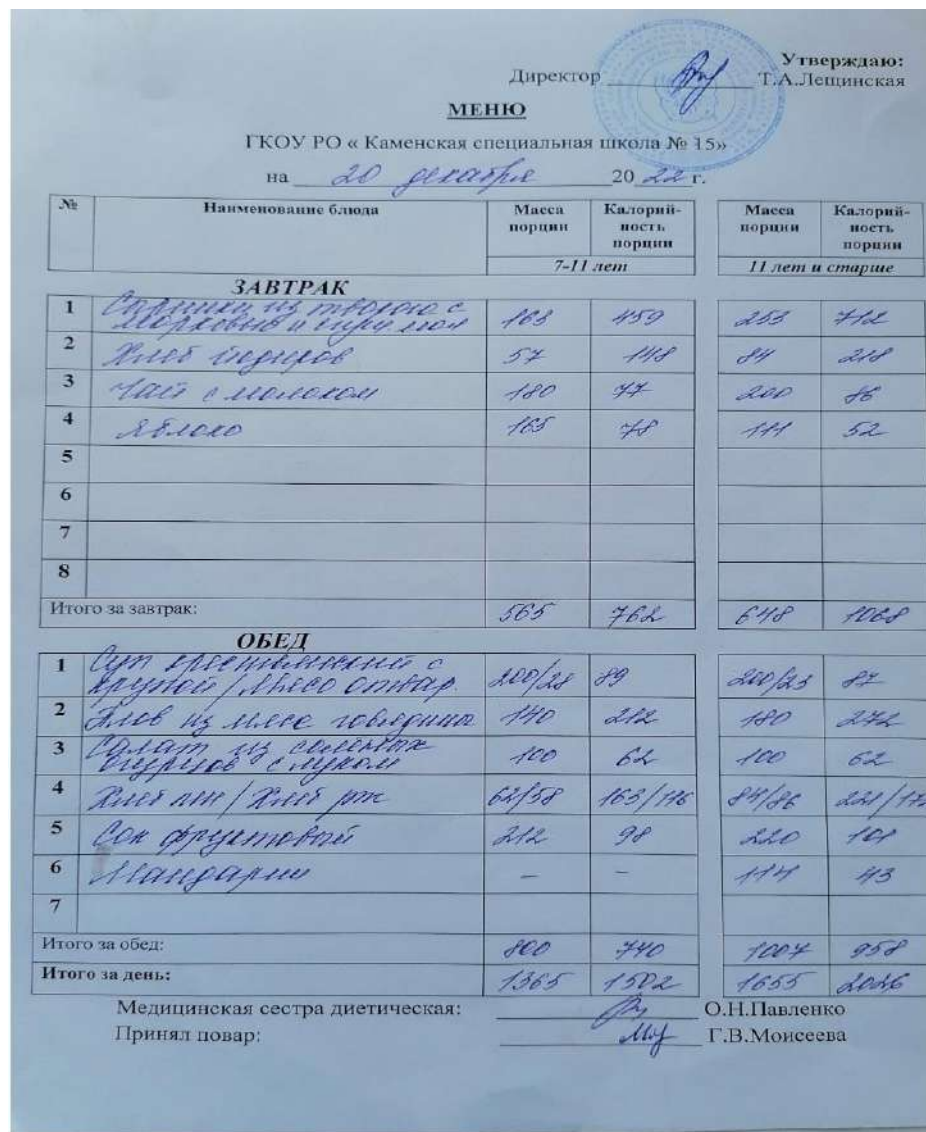 Утверждаю:
Директор Т.А.Лещинская
МЕНЮ
ГКОУ РО « Каменская специальная школа № 15»
на 20 декабря 20 22 г.
№ Наименование блюда Масса порции Калорий-ность порции Масса порции Калорий-ность порции
7-11 лет 11 лет и старше
ЗАВТРАК
1 из творога с
морковью и 163 459 253 712
2 Хлеб йодиров 57 148 84 218
3 Чай с молоком 180 77 200 86
4 Яблоко 165 78 111 52
5
6
7
8
Итого за завтрак: 565 762 648 1068
ОБЕД
1 Суп крестьянский с
крупой / Мясо отвар. 200/28 89 200/23 87
2 Плов из мяса говядина 140 212 180 272
3 Салат из соленых
огурцов с луком 100 62 100 62
4 Хлеб пш / Хлеб рж 62/58 163/116 84/86 221/172
5 Сок фруктовый 212 98 220 101
6 Мандарин – – 114 43
7
Итого за обед: 800 740 1007 958
Итого за день: 1365 1502 1655 2026
Медицинская сестра диетическая: О.Н.Павленко
Принял повар: Г.В.Моисеева